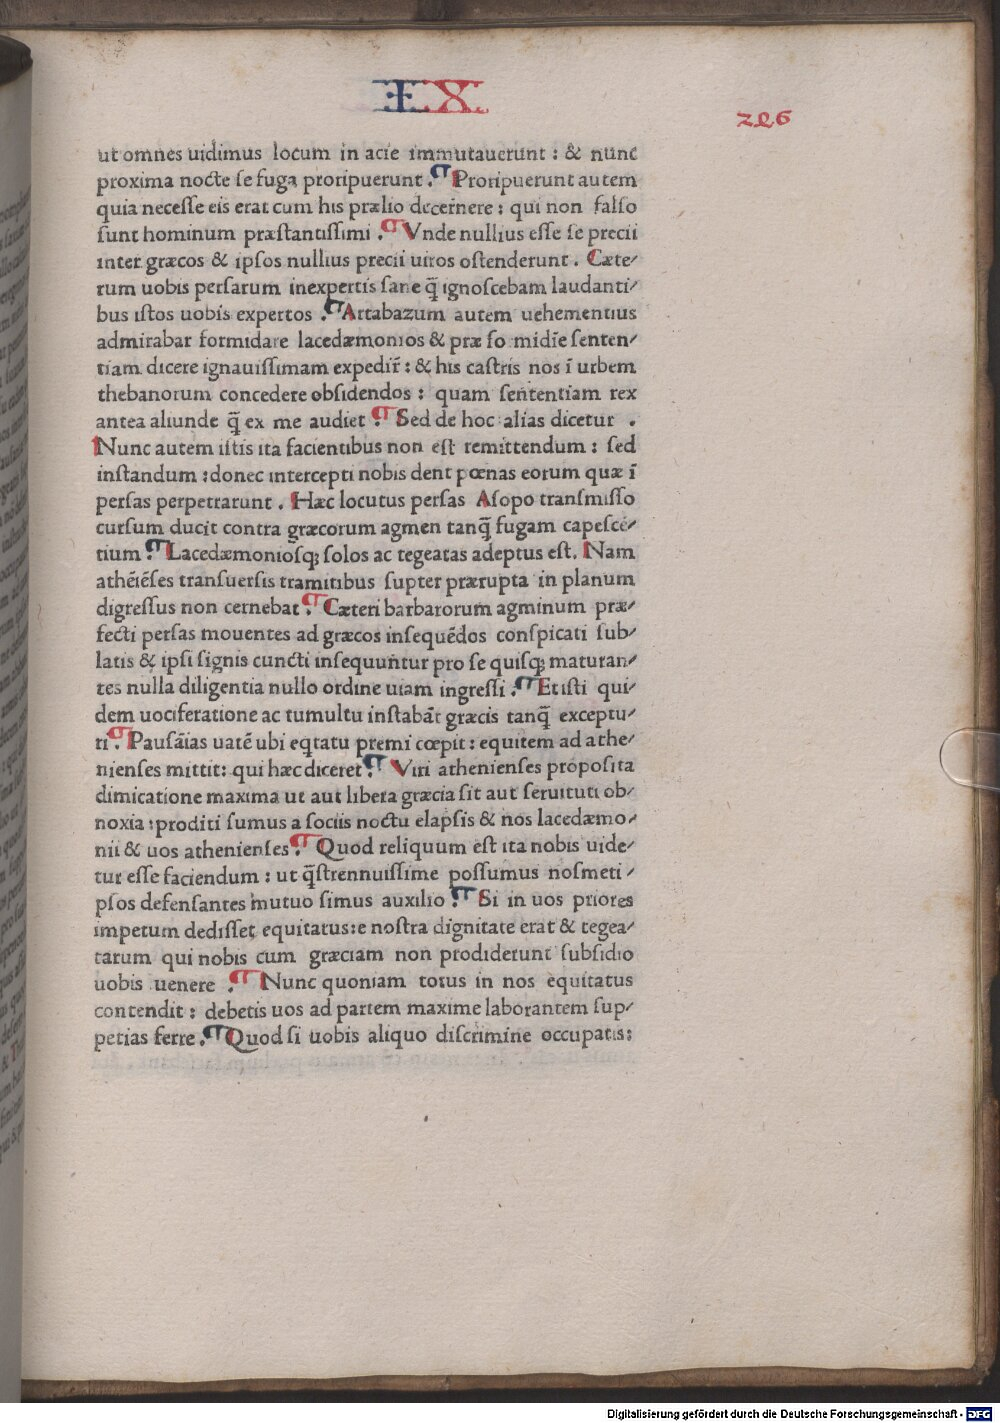 IX
246
ut omnes uidimus locum in acie immutauerunt : & nunc
proxima nocte ſe fuga proripuerunt . ¶ Proripuerunt autem
quia neceſſe eis erat cum his prælio decernere : qui non falſo
ſunt hominum præſtantiſſimi . ¶ Vnde nullius eſſe ſe precii
inter græcos & ipſos nullius precii uiros oſtenderunt . Cæte⸗
rum uobis perſarum inexpertis ſane q̃ ignoſcebam laudanti⸗
bus iſtos uobis expertos . ¶ Artabazum autem uehementius
admirabar formidare lacedæmonios & præ fo midīe ſenten⸗
tiam dicere ignauiſſimam expedir̃ : & his caſtris nos ī urbem
thebanorum concedere obſidendos : quam ſententiam rex
antea aliunde q̃ ex me audiet . ¶ Sed de hoc alias dicetur .
Nunc autem iſtis ita facientibus non eſt remittendum : ſed
inſtandum : donec intercepti nobis dent pœnas eorum quæ ī
perſas perpetrarunt . Hæc locutus perſas Aſopo tranſmiſſo
curſum ducit contra græcorum agmen tanq̃ fugam capeſcē⸗
tium . ¶ Lacedæmonioſq; ſolos ac tegeatas adeptus eſt . Nam
athēiēſes tranſuerſis tramitibus ſupter prærupta in planum
digreſſus non cernebat . ¶ Cæteri barbarorum agminum præ⸗
fecti perſas mouentes ad græcos inſequēdos conſpicati ſub⸗
latis & ipſi ſignis cuncti inſequuntur pro ſe quiſq; maturan⸗
tes nulla diligentia nullo ordine uiam ingreſſi . ¶ Et iſti qui⸗
dem uociferatione ac tumultu inſtabāt græcis tanq̃ exceptu⸗
ri . ¶ Pauſāias uatē ubi eq̃tatu premi cœpit : equitem ad athe⸗
nienſes mittit : qui hæc diceret . ¶ Viri athenienſes propoſita
dimicatione maxima ut aut libera græcia ſit aut ſeruituti ob⸗
noxia : proditi ſumus a ſociis noctu elapſis & nos lacedæmo⸗
nii & uos athenienſes . ¶ Quod reliquum eſt ita nobis uide⸗
tur eſſe faciendum : ut q̃ſtrennuiſſime poſſumus noſmeti⸗
pſos defenſantes mutuo ſimus auxilio . ¶ Si in uos priores
impetum dediſſet equitatus : e noſtra dignitate erat & tegea⸗
tarum qui nobis cum græciam non prodiderunt ſubſidio
uobis uenere . ¶ Nunc quoniam totus in nos equitatus
contendit : debetis uos ad partem maxime laborantem ſup⸗
petias ferre . ¶ Quod ſi uobis aliquo diſcrimine occupatis :
Digitalisierung gefördert durch die Deutsche Forschungsgemeinschaft - DFG